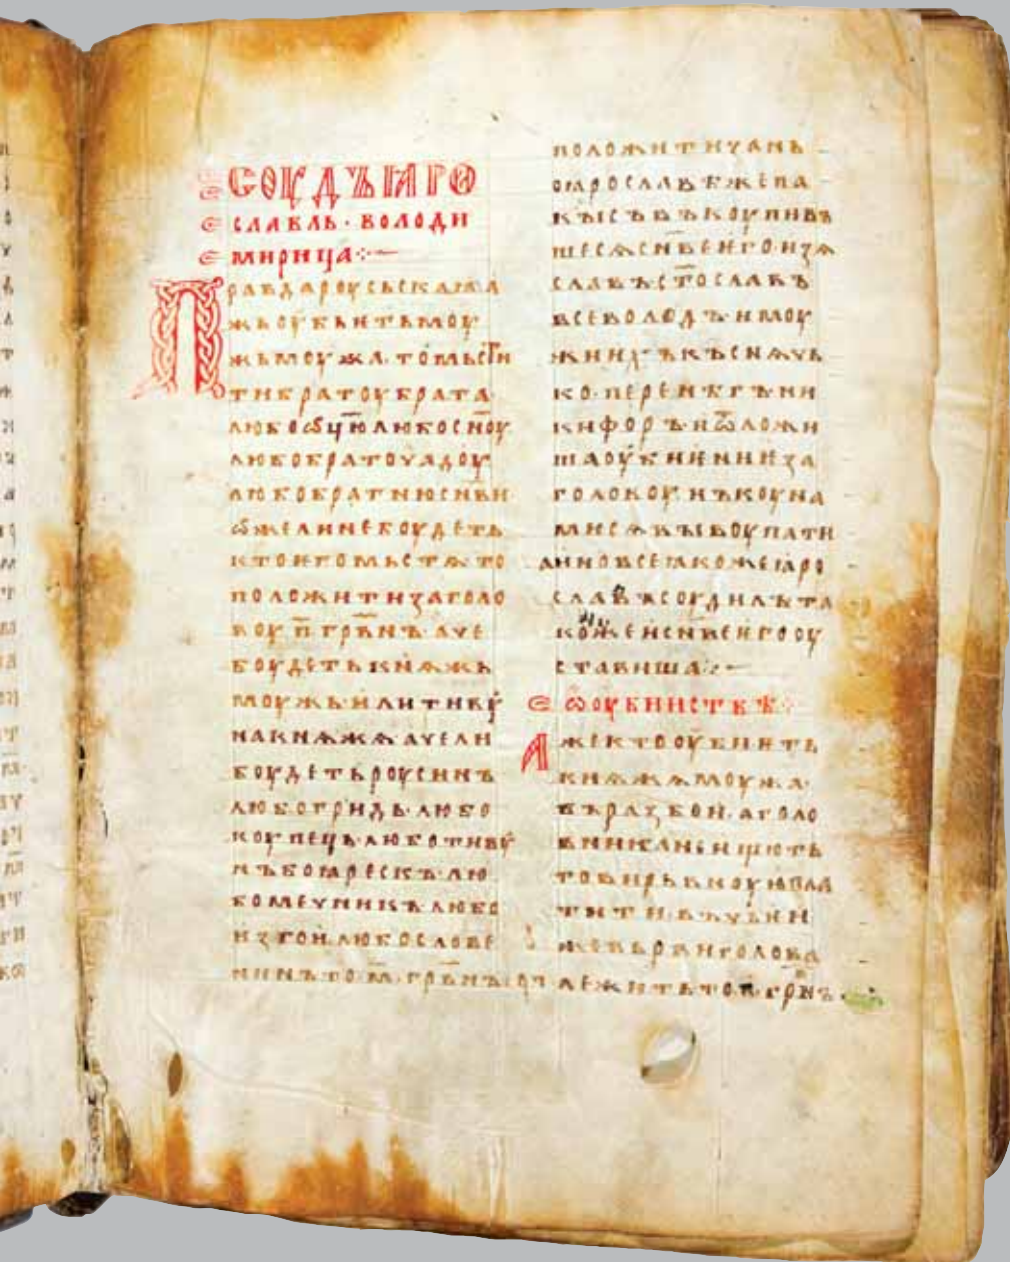 СОУДЪ ꙖРО
СЛАВЛЬ · ВОЛОДИ
МИРИЦА
Правда роусьскаꙗ А
жь оубьѥть моу
жь моужа · то мьсти
ти братоу брата
любо оц҃ю любо сн҃оу
любо братоучадоу
любо братню сн҃ви
ѡже ли не боудеть
кто ѥго мьстѧ то
положити за голо
воу п҃ грвн҃ъ · аче
боудеть кнѧжь
моужь или тивоу
на кнѧжѧ аче ли
боудеть роусинъ
любо гридь · любо
коупець · любо тивоу
нъ боꙗрескъ · лю
бо мечникъ · любо
изгои · любо слове
нинъ то м҃ · грвн҃ъ
положити за нь
по ꙗрославѣ же па
кы съвъкоупивъ
шесѧ сн҃ве ѥго изѧ
славъ · ст҃ославъ
всеволодъ · и моу
жи ихъ къснѧчь
ко · перенѣгъ ни
кифоръ · и ѿложи
ша оубиѥниѥ за
голову · нъ коуна
ми сѧ выкоупати
а ино все ꙗкоже ꙗро
славъ соудилъ та
коже и сн҃ве ѥго оу
ставиша
Ѡ оубииствѣ
Аже кто оубиѥть
кнѧжѧ моужа ·
въ разбои · а голо
вника не ищють
то вирьвноую пла
тити · въ чьѥи
же вьрви голова
лежить то п҃ · грвн҃ъ